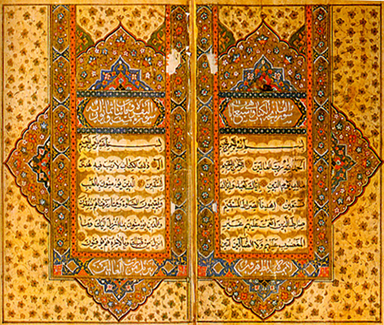 بسم الله الرحمن الرحيم
الحمد لله رب العالمين الرحمن
الرحيم مالك يوم الدين اياك نعبد واياك
نستعين اهدنا الصراط المستقيم
صراط الذين انعمت عليهم غير
المغضوب عليهم ولا الضالين
لا يمسه الا المطهرون
بسم الله الرحمن الرحيم
الم ذلك الكتاب لا ريب فيه هدى
للمتقين الذين يؤمنون بالغيب
ويقيمون الصلوة ومما رزقناهم ينفقون
والذين يؤمنون بما انزل اليك وما
انزل من قبلك وبالاخرة هم يوقنون
تنزيل من رب العالمين